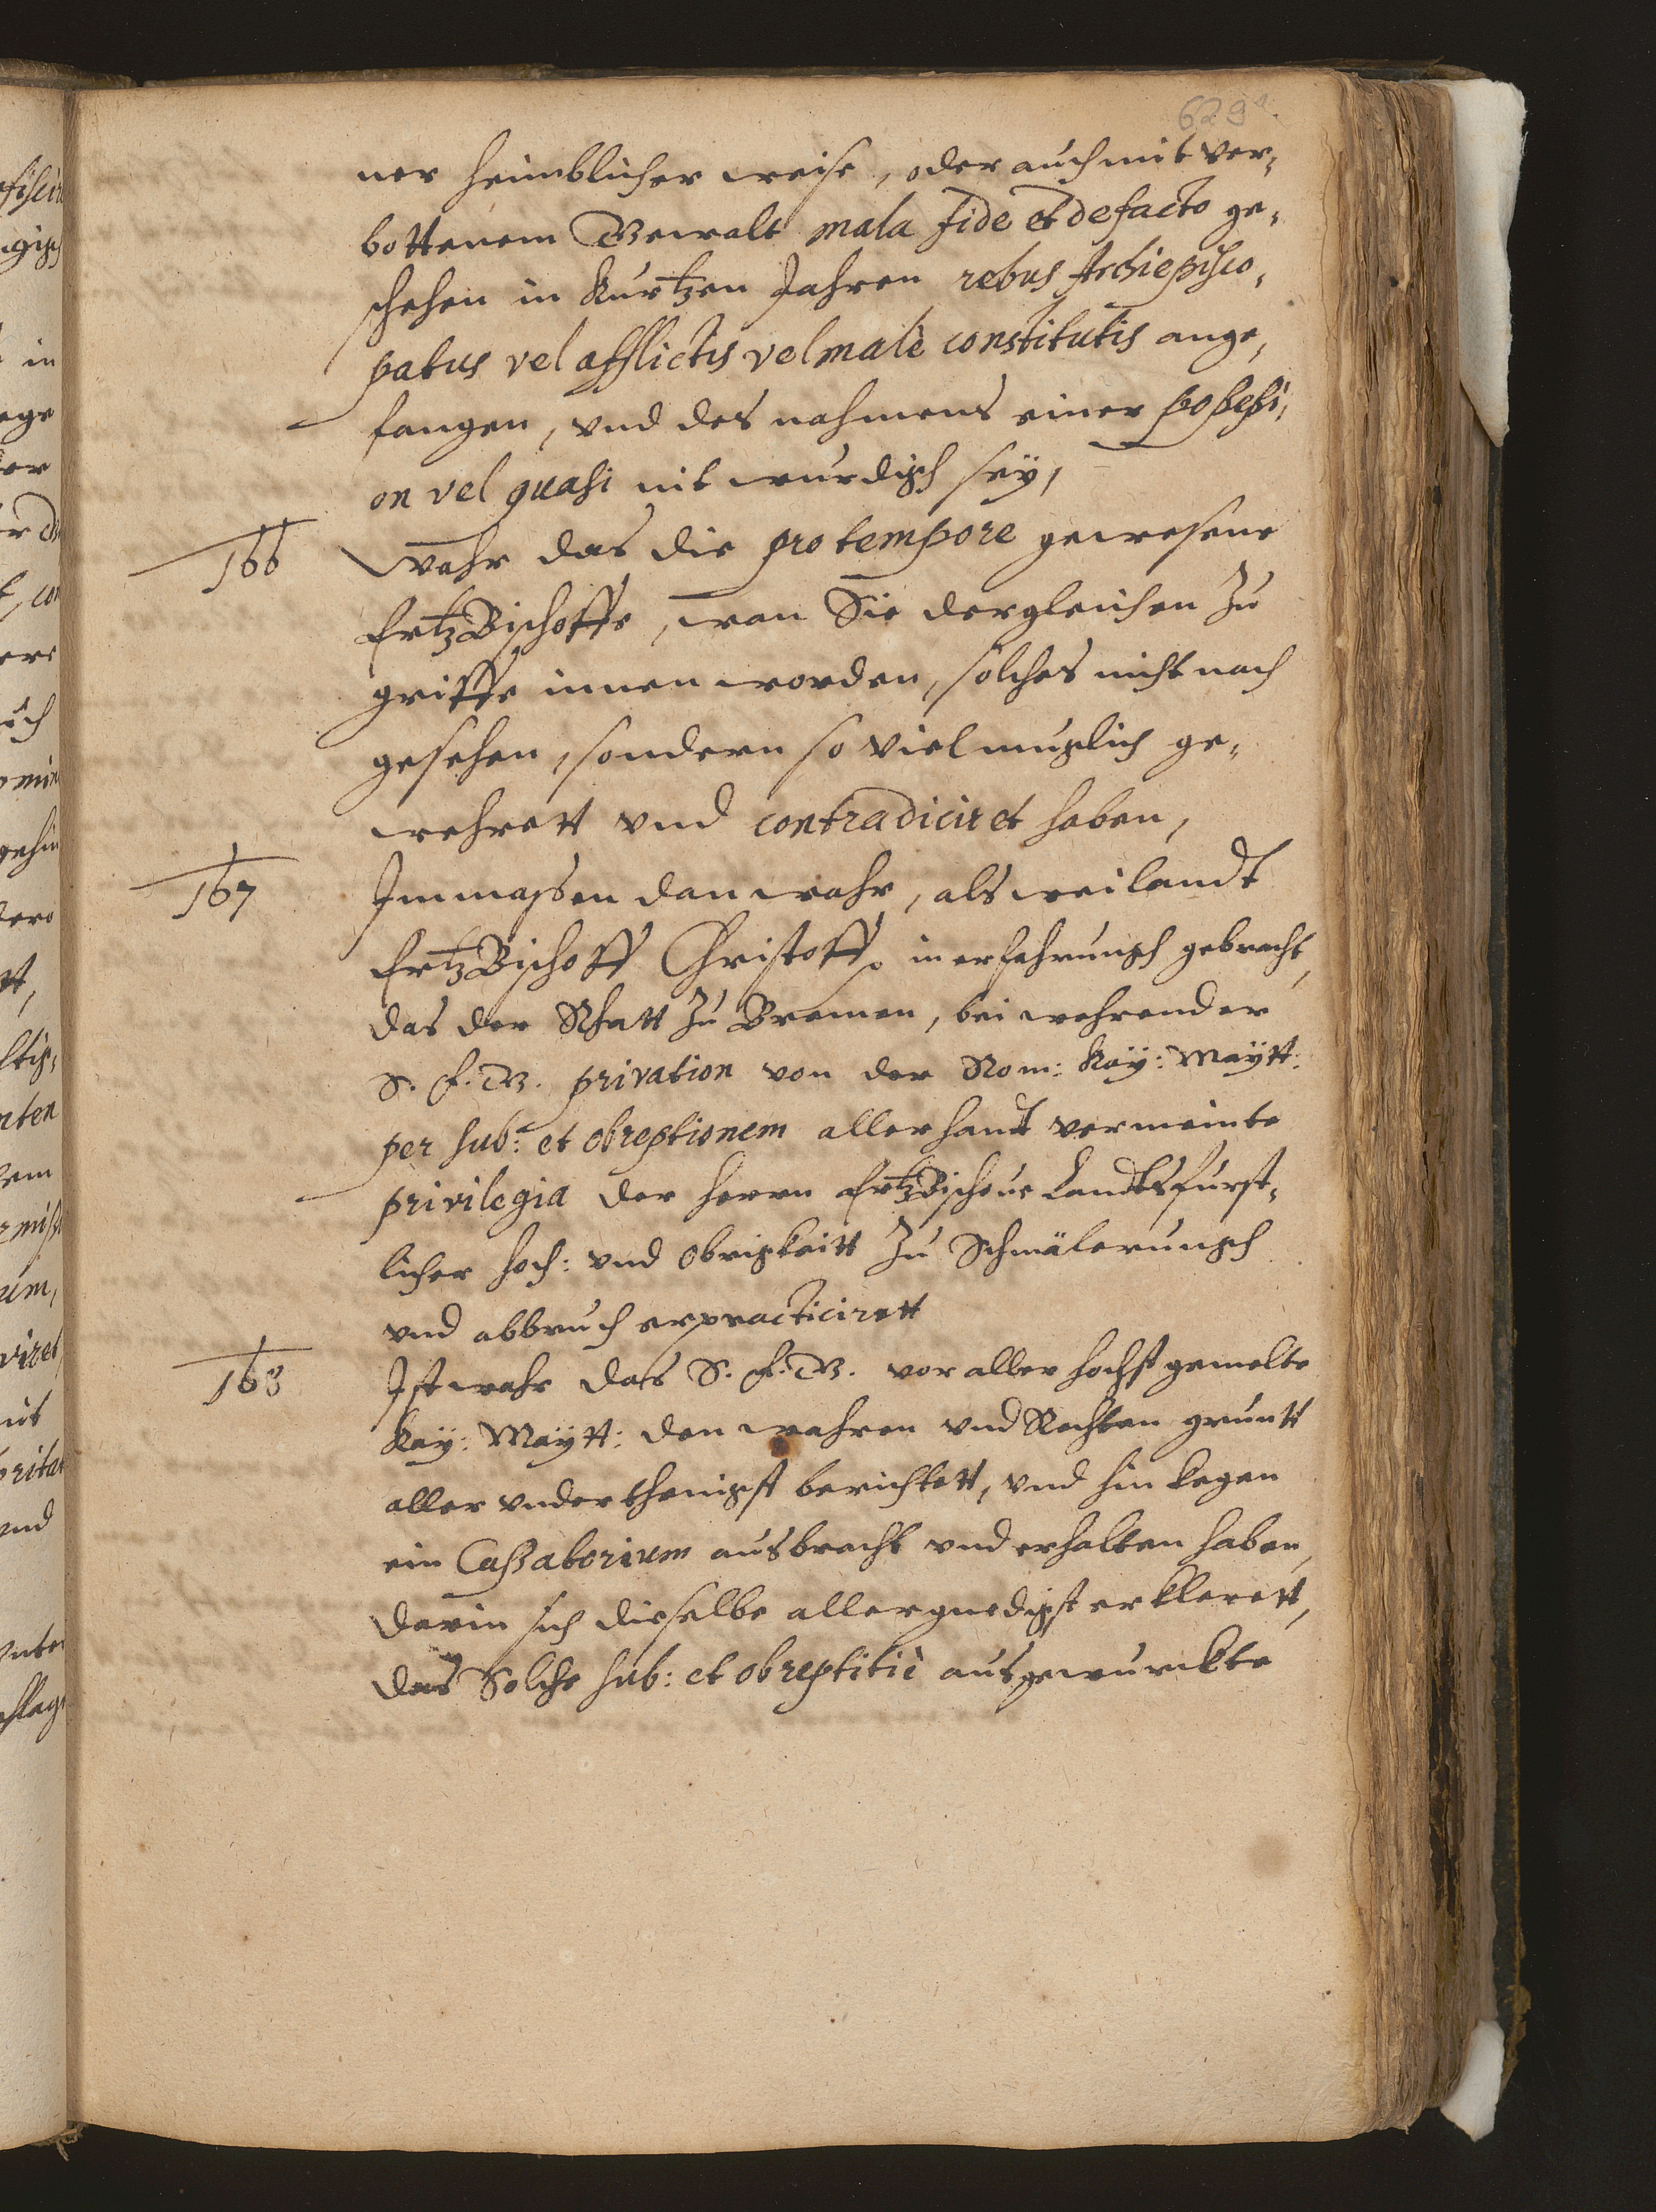 629a.
ner heimblicher weise, oder auch mit ver,
bottenem Gewalt mala fide et de facto ge,
schehen in kurtzen Jahren rebus Archiepisco,
patus vel afflictis vel malè constitutis ange,
fangen, vnd des nahmens einer possessi,
on vel quasi nit wurdigh seÿ,
166 Wahr das die pro tempore gewesene
ErtzBischoffe, wan Sie dergleichen Zu
griffe innen worden, solches nicht nach
gesehen, sondern so viel muglich ge,
wehrett vnd contradiciret haben,
167 Immassen dan wahr, als weilandt
ErtzBischoff Christoff, in erfahrungh gebracht,
das der Rhatt zu Bremen, bei wehrender
S. F. G. privation von der Rom: Kaÿ: Maÿtt:
per sub: et obreptionem allerhandt vermeinte
privilegia der herrn ErtzBischoue Landtsfurst,
licher hoch: vnd Obrigkeitt zu Schmälerungh
vnd abbruch erpracticirett
168 Ist wahr das S. F. G. vor aller hochst gemelte
Kaÿ: Maÿtt: den wahren vnd Rechten gruntt
aller vnderthenigst berichtett, vnd hin kegen
ein Cassatorium ausbracht vnd erhalten haben,
darin sich dieselbe allergnedigst erklerett,
das Solche sub: et obreptitiè ausgewurckte